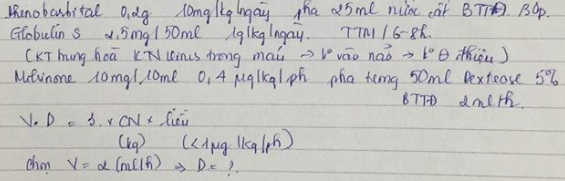 Phenobarbital 0,2g 10mg/kg/ngày pha 25ml nước cất BTTĐ. 30p.
Globulin S 2,5mg/50ml 1g/kg/ngày. TTM/6-8h.
(KT trung hoà KN virus trong máu → k° vào não → k° θ thiệu)
Milrinone 10mg/10ml 0,4 µg/kg/ph pha tứng 50ml Dextrose 5%
BTTĐ 2ml/h.
V. D = 3. x CN x liều
(kg) (<1µg/kg/ph)
chọn V = 2 (ml/h) ⇒ D = ?